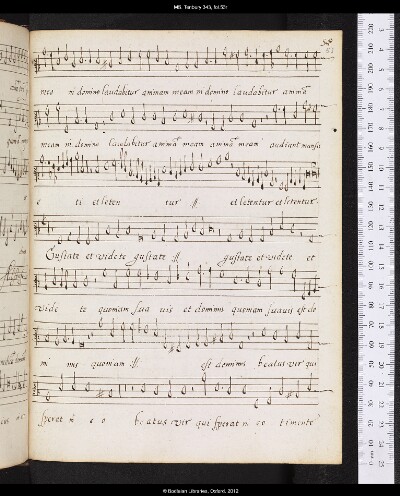 MS. Tenbury 343, fol.52r
meo in domino laudabitur animam meam in domino laudabitur animā
meam in domino laudabitur animā meam animā meam audiant mansu
e ti et leten tur //. et letentur et letentur.
Gustate et videte gustate //. gustate et videte et
vide te quoniam sua vis et dominus quoniam suavis est do
mi nus quoniam //. est dominus beatus vir qui
sperat in e o beatus vir qui sperat in eo timente
© Bodleian Libraries, Oxford, 2012